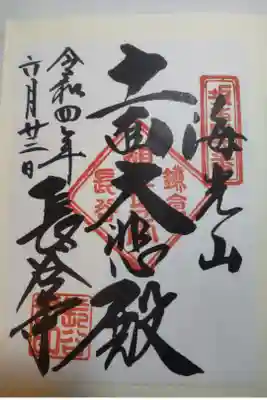 海光山
十一面大悲殿
長谷寺
令和四年
六月廿三日
鎌倉
長谷